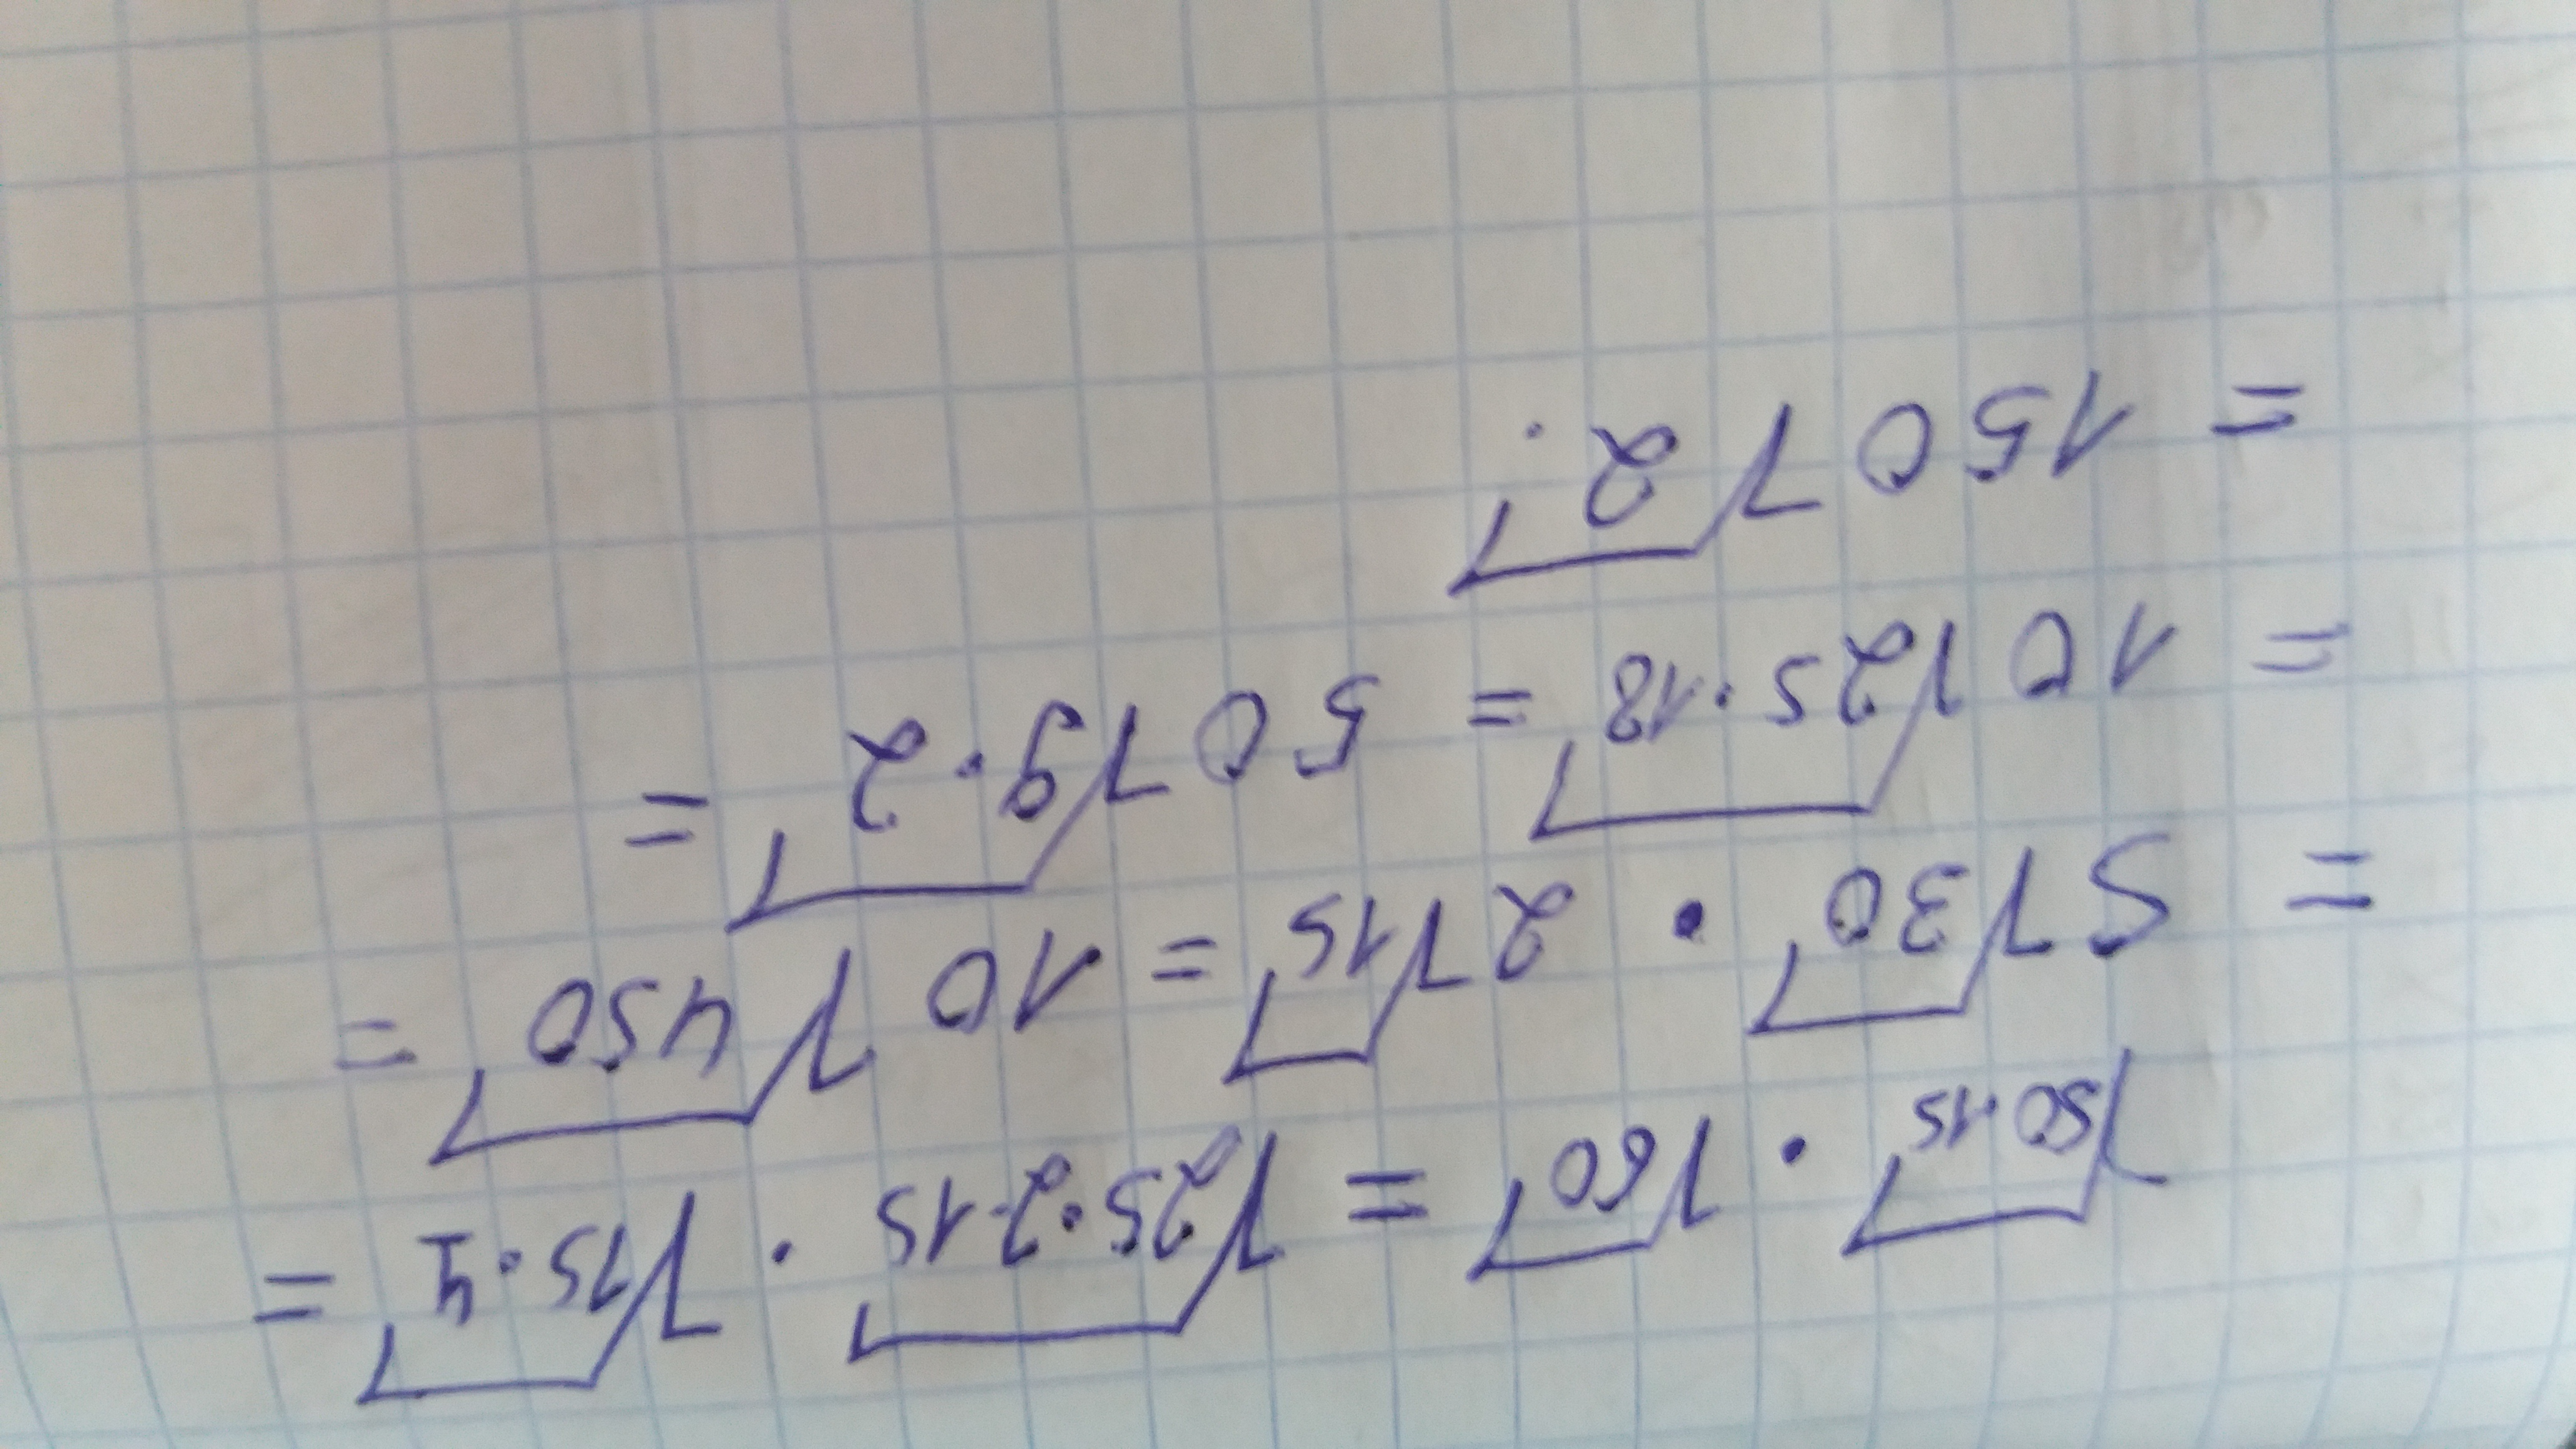 √50·15 · √60 = √25·2·15 · √15·4 =
= 5√30 · 2√15 = 10√450 =
= 10√25·18 = 50√9·2 =
= 150√2.